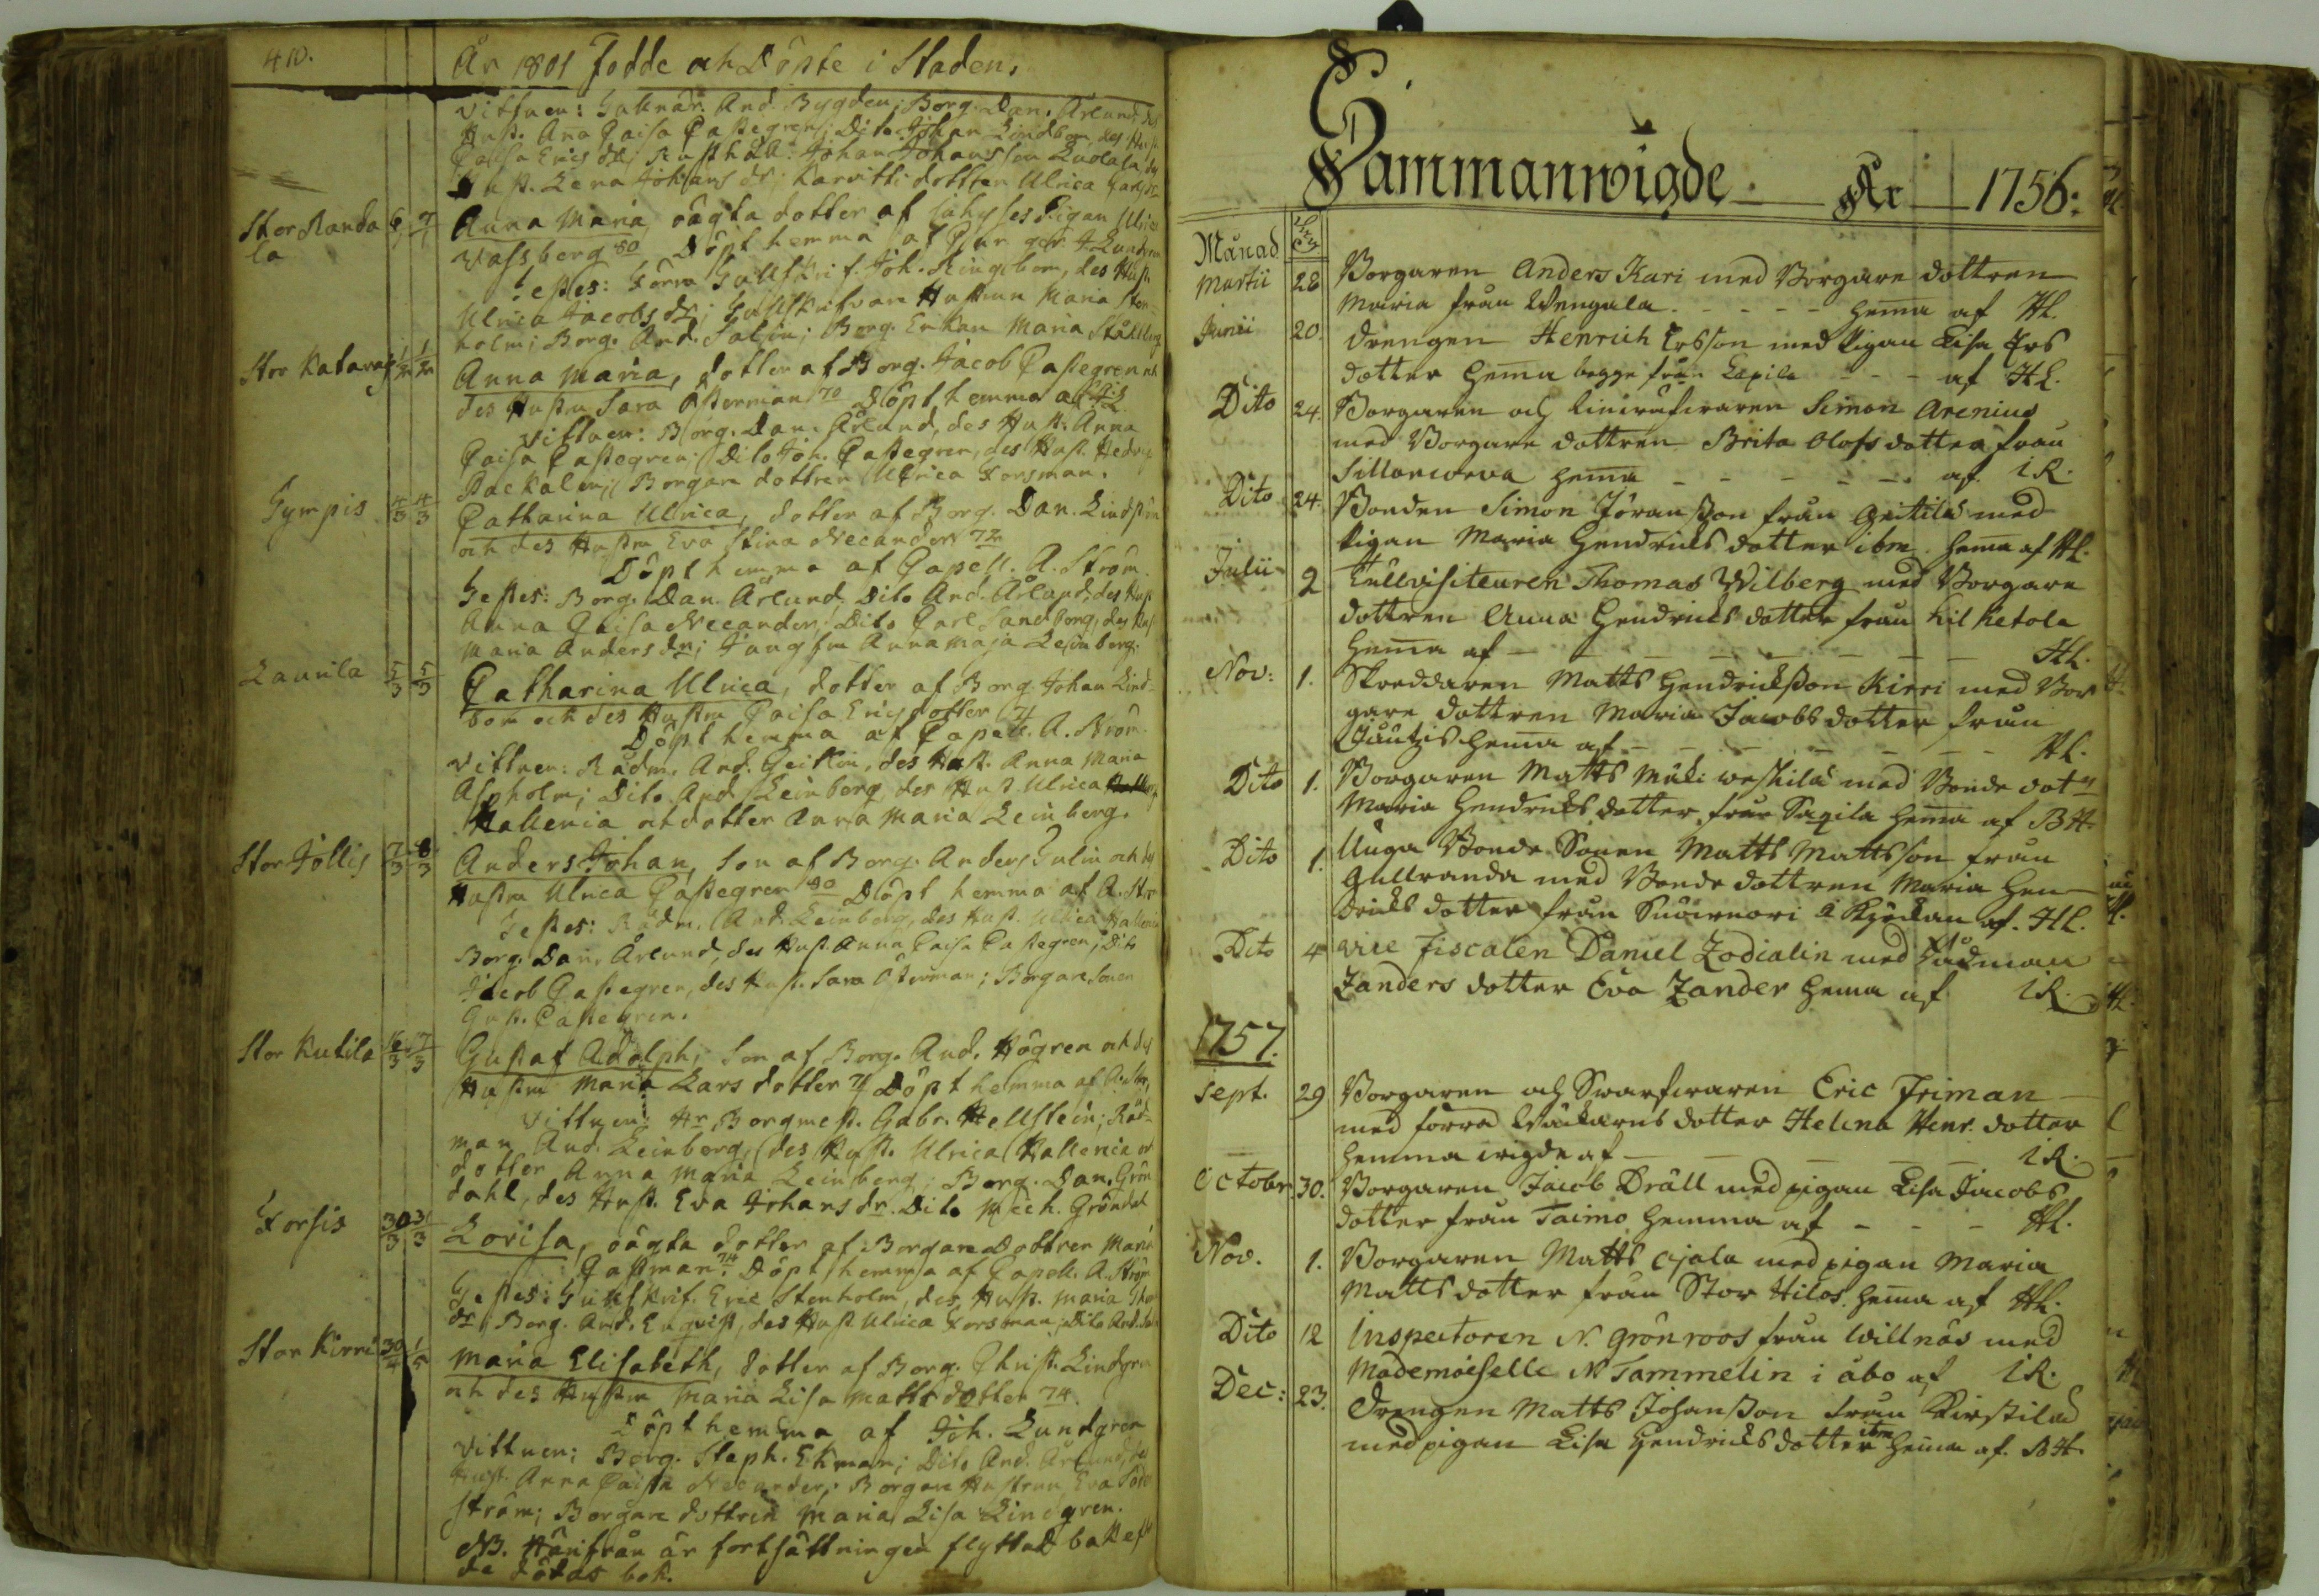 410.
År 1801 Födde och Döpte i Staden.
Vittnen: And. Bygden; Borg. Dan. Ärlund, des
Hust. Ana Caisa Castegren; Dito Johan Lindbom, des Hust.
Caisa Erics dr; Johan Johansson
Hust. Lena Johans dr; dottren Ulrica
Stor Randa 6 7 Anna Maria, oägta dotter af Pigan Ulrica
la Vassberg 80 Döpt hemma af J. Lundgren
Testes: Förra Joh. Ringbom, des Hust.
Ulrica Jacobs dr; Hustrun Maria Sten-
holm; Borg. And. Salin; Borg. Enkan Maria Ståhlberg
Stor Katava Anna Maria, dotter af Borg. Jacob Castegren och
des Hustru Sara Österman 70 Döpt hemma af
Vittnen: Borg. Dan. Ärlund, des Hust. Anna
Caisa Castegren; Dito Joh. Castegren, des Hust. Hedvig
Packalen; Borgare dottren Ulrica Forsman.
Gympis 4/3 4/3 Catharina Ulrica, dotter af Borg. Dan. Lindström
och des Hustru Eva Stina Necander 72
Döpt hemma af Capell. A. Ström.
Testes: Borg. Dan. Ärlund, Dito And. Ärlund, des Hust.
Anna Caisa Necander; Dito Carl Sandborg, des Hust
Maria Anders dr; Jungfru Anna Maja Leinberg.
Launila 5/3 5/3 Catharina Ulrica, dotter af Borg. Johan Lind-
bom och des Hustru Caisa Erics dotter 71
Döpt hemma af Capell. A. Ström
Vittnen: Rådm. And. Geitlin, des Hust. Anna Maria
Alpholm; Dito And. Leinberg des Hust. Ulrica
Hallenia och dotter Anna Maria Leinberg.
Stor Jöllis 7/3 8/3 Anders Johan, Son af Borg. Anders Gulin och des
Hustru Ulrica Castegren 80 Döpt hemma af A. Str
Testes: Rådm. And. Leinberg, des Hust. Ulrica Hallenia
Borg. Dan. Ärlund, des Hust. Anna Caisa Castegren; Dito
Jacob Castegren, des Hust. Sara Österman; Borgare Sonen
Gust. Castegren.
Stor Kutila 16/3 17/3 Gustaf Adolph, Son af Borg. And. Högren och des
Hustru Maria Lars dotter 71 Döpt hemma af A. Str.
Vittnen: Hr Borgmest. Gabr. Hellstein; Råd-
man And. Leinberg, des Hust. Ulrica Hallenia och
dotter Anna Maria Leinberg; Borg. Dan. Grön
dahl, des Hust. Eva Johans dr. Dito Mich. Gröndal
Forsis 30/3 31/3 Lovisa, oägta dotter af Borgare Dottren Maria
Gastman 74. Döpt hemma af Capell. A. Ström
Testes: Eric Stenholm, des Hust. Maria
dr; Borg. And. Enqvist, des Hust Ulrica Forsman; Dito And.
Stor Kirri 30/4 1/5 Maria Elisabeth, dotter af Borg. Christ. Lindgren
och des Hustru Maria Lisa Matts dotter 74.
Döpt hemma af Joh. Lundgren
Vittnen: Borg. Steph. Ekman; Dito And. Ärlund, des
Hust. Anna Caisa Necander; Borgare Hustrun Eva Söder
ström; Borgare dottren Maria Lisa Lindgren.
NB. Härifrån är fortsättningen flyttad bakefter
de dödas bok.
Sammanwigde År 1756:
Månad
Martii 28 Borgaren Anders Kari med Borgare dottren
Maria från Wengala - - - - hema af HL.
Junii 20. Drengen Henrich Ersson med Pigan Lisa Ers
dotter hema begge från Lapila - - - af HL.
Dito 24. Borgaren och Linväfwaren Simon Arenius
med Borgare dottren Brita Olofs dotter från
Sillanwora hema - - - - - af IR.
Dito 24. Bonden Simon Jöransson från Geitila med
Pigan Maria Hendrichs dotter ibm. hema af HL.
Julii 2 Tullvisiteuren Thomas Wilberg med Borgare
dottren Anna Hendrichs dotter från Lil Ketola
hema af - - - - - HL.
Nov: 1. Skreddaren Matts Hendricksson Kirri med Bor
gare dottren Maria Jacobs dotter från
hema af - - - - - HL.
Dito 1. Borgaren Matts Mäki weskilä med Bonde dotr
Maria Hendrichs dotter från Sagila hema af BH.
Dito 1. Unga Bonde Sonen Matts Mattsson från
Gullranda med Bonde dottren Maria Hen-
drichs dotter från i Kyrckan af HL.
Dito 4 Vice Fiscalen Daniel Zodialin med Rådman
Zanders dotter Eva Zander hema af IR.
1757.
Sept. 29 Borgaren och Swarfwaren Eric Friman
med förra Wäckarns dotter Helena Henr. dotter
hemma wigde af - - - - IR.
October 30. Borgaren Jacob Dräll med pigan Lisa Jacobs
dotter från Taimo hemma af - - - HL.
Nov. 1. Borgaren Matts Ajala med pigan Maria
Matts dotter från Stor Hilos. hema af HL.
Dito 12 Inspectoren N. Grönroos från Willnäs med
Mademoiselle N Tammelin i Åbo af IR.
Dec: 23. Drengen Matts Johansson från Kirstila
med pigan Lisa Hendrichs dotter ibm hema af BH.